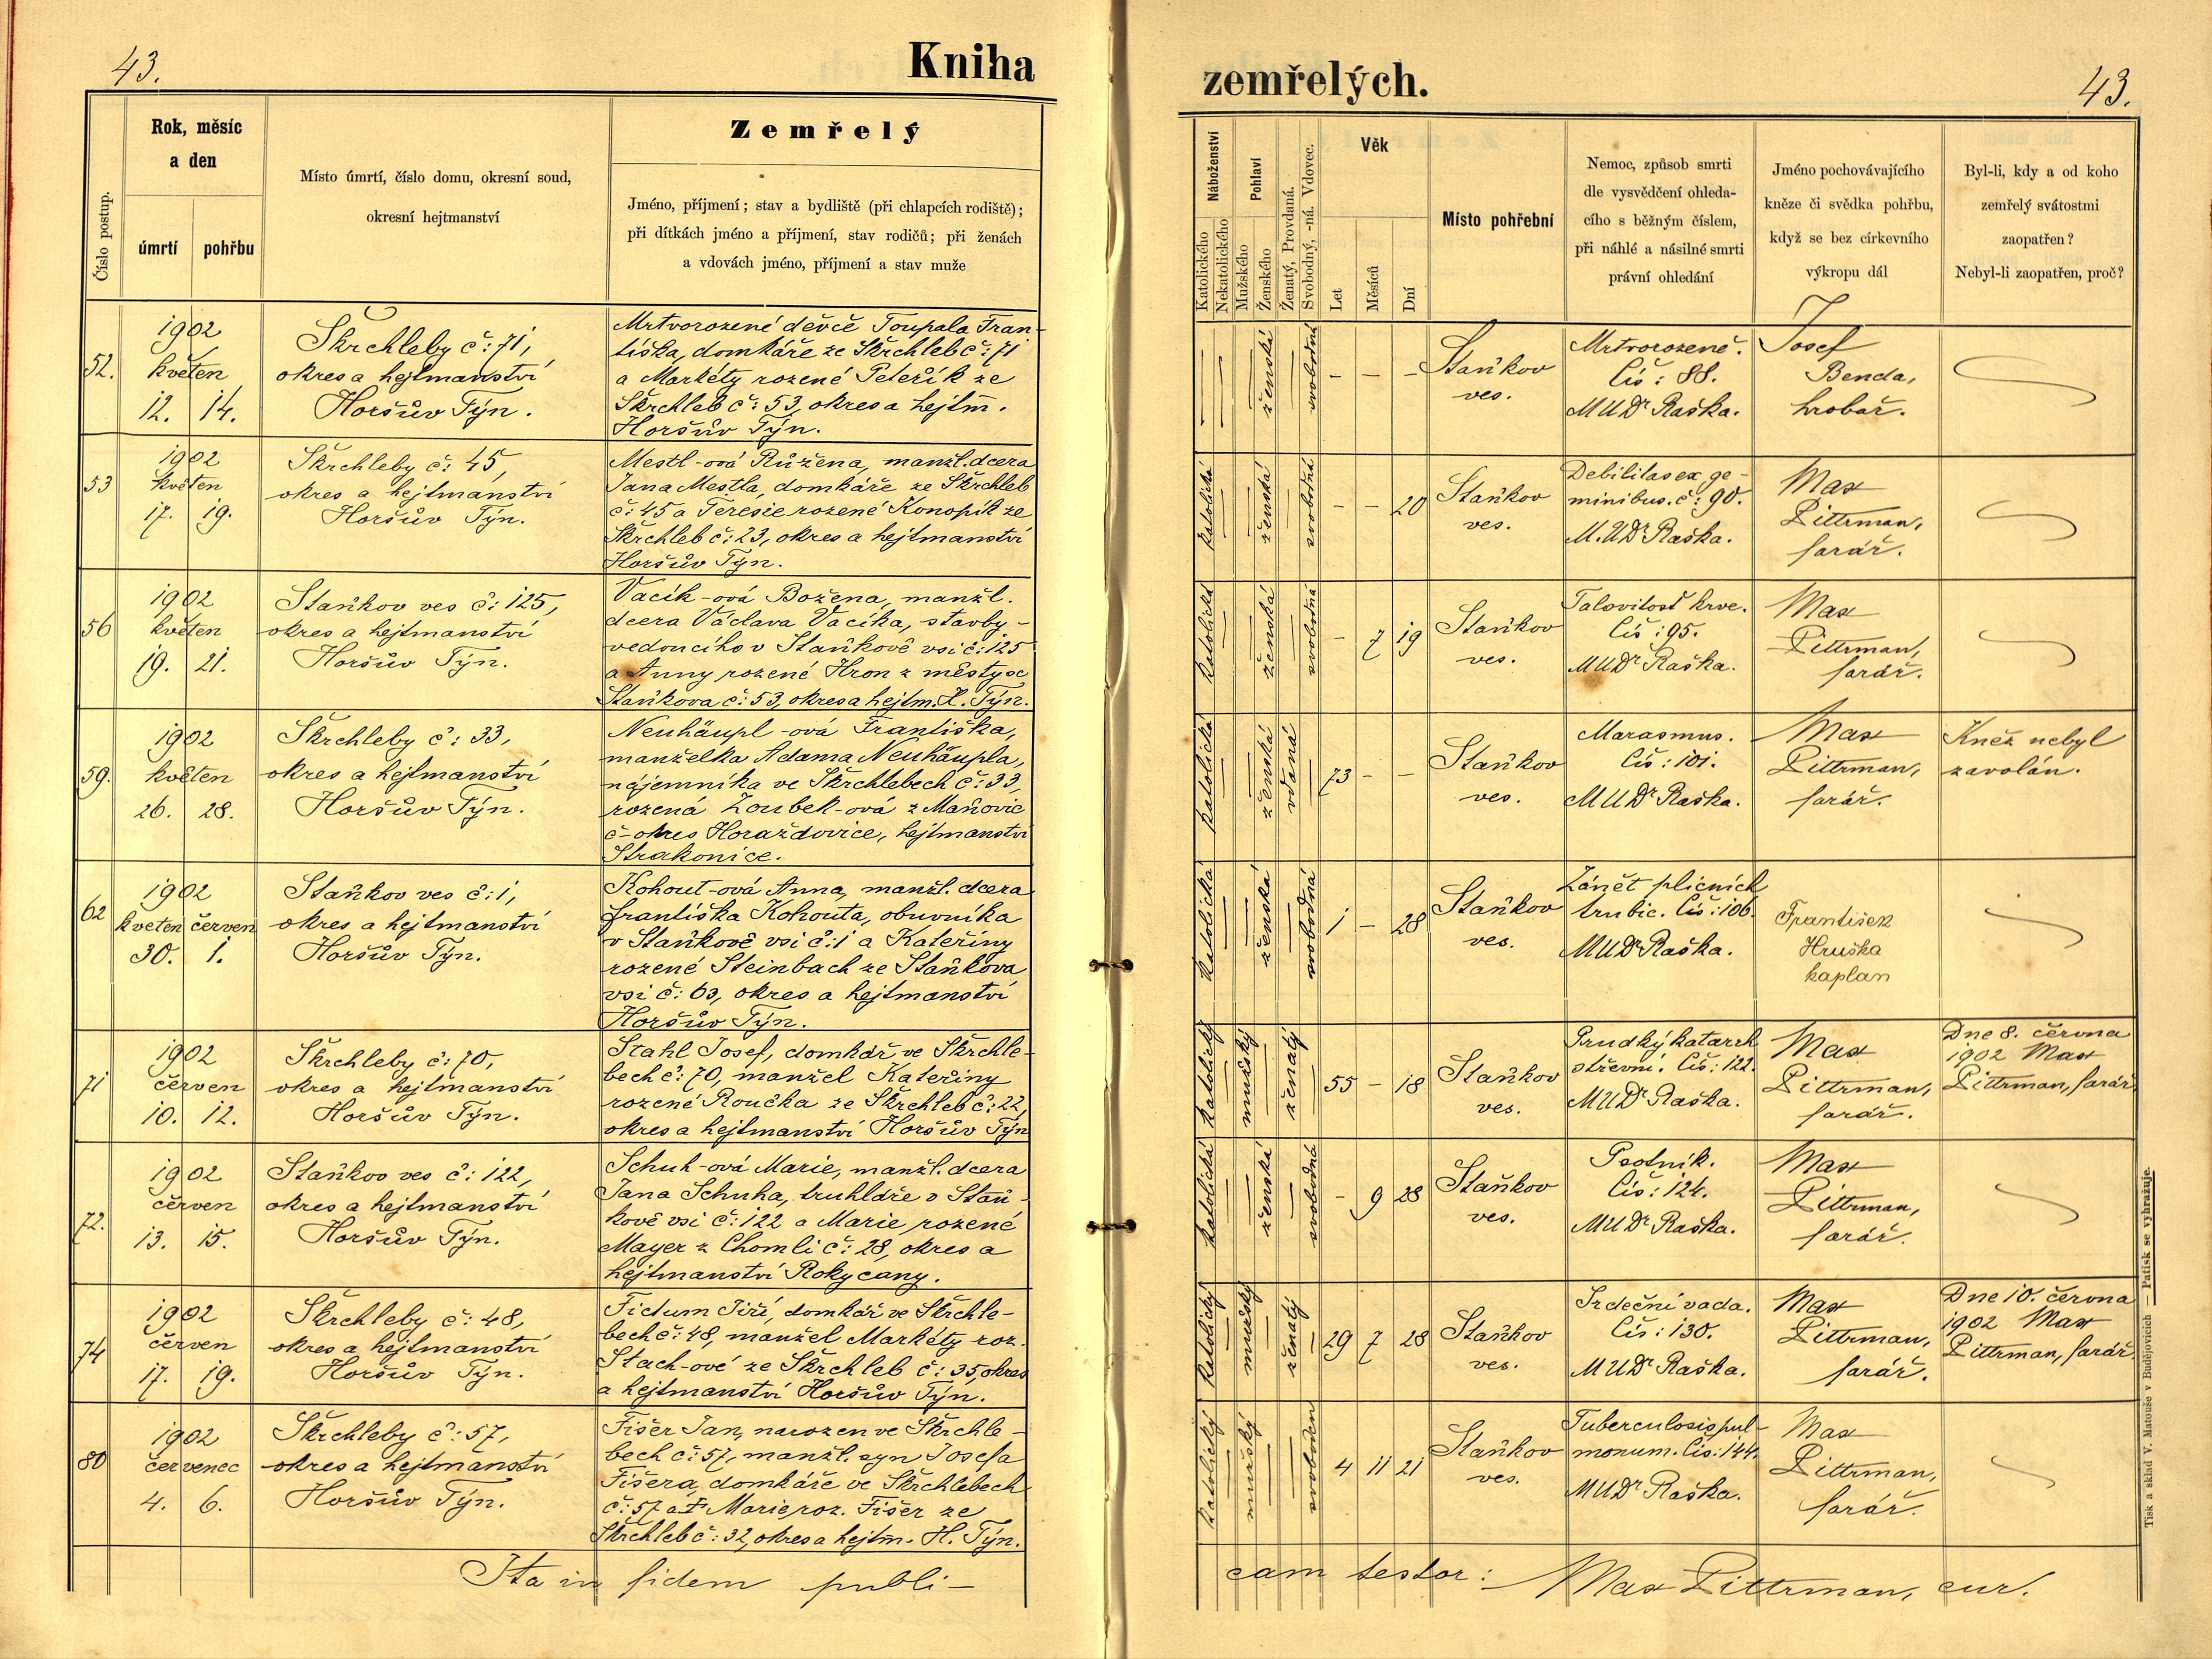 43.
Kniha
Číslo postup.
Rok, měsíc
a den
úmrtí
pohřbu
Místo úmrtí, číslo domu, okresní soud,
okresní hejtmanství
Zemřelý
Jméno, příjmení; stav a bydliště (při chlapcích rodiště);
při dítkách jméno a příjmení, stav rodičů; při ženách
a vdovách jméno, příjmení a stav muže
52.
1902
květen
12. 14.
Škrchleby č: 71,
okres a hejtmanství
Horšův Týn.
Mrtvorozené děvče Toupala Fran-
tiška, domkáře ze Škrchleb č: 71
a Markéty rozené Peteřík ze
Škrchleb č: 53, okres a hejtm̄.
Horšův Týn.
53
1902
květen
17. 19.
Škrchleby č: 45,
okres a hejtmanství
Horšův Týn.
Mestl-ová Růžena, manžl. dcera
Jana Mestla, domkáře ze Škrchleb
č: 45 a Teresie rozené Konopík ze
Škrchleb č: 23, okres a hejtmanství
Horšův Týn.
56
1902
květen
19. 21.
Staňkov ves č: 125,
okres a hejtmanství
Horšův Týn.
Vacík-ová Božena, manžl.
dcera Václava Vacíka, stavby-
vedoucího v Staňkově vsi č: 125
a Anny rozené Hron z městyse
Staňkova č: 53, okres a hejtm. H. Týn.
59.
1902
květen
26. 28.
Škrchleby č: 33,
okres a hejtmanství
Horšův Týn.
Neuhäupl-ová Františka,
manželka Adama Neuhäupla,
nájemníka ve Škrchlebech č: 33,
rozená Zoubek-ová z Maňovic
č- okres Horažďovice, hejtmanství
Strakonice.
62
1902
květen červen
30. 1.
Staňkov ves č: 1,
okres a hejtmanství
Horšův Týn.
Kohout-ová Anna, manžl. dcera
Františka Kohouta, obuvníka
v Staňkově vsi č: 1 a Kateřiny
rozené Steinbach ze Staňkova
vsi č: 63, okres a hejtmanství
Horšův Týn.
71
1902
červen
10. 12.
Škrchleby č: 70,
okres a hejtmanství
Horšův Týn.
Stahl Josef, domkář ve Škrchle-
bech č: 70, manžel Kateřiny
rozené Roučka ze Škrchleb č: 22,
okres a hejtmanství Horšův Týn
72.
1902
červen
13. 15.
Staňkov ves č: 122,
okres a hejtmanství
Horšův Týn.
Schuh-ová Marie, manžl. dcera
Jana Schuha, truhláře v Staň-
kově vsi č: 122 a Marie rozené
Mayer z Chomle č: 28, okres a
hejtmanství Rokycany.
74
1902
červen
17. 19.
Škrchleby č: 48,
okres a hejtmanství
Horšův Týn.
Fictum Jiří, domkář ve Škrchle-
bech č: 48, manžel Markéty roz.
Stach-ové ze Škrchleb č: 35, okres
a hejtmanství Horšův Týn.
80
1902
červenec
4. 6.
Škrchleby č: 57,
okres a hejtmanství
Horšův Týn.
Fišer Jan, narozen ve Škrchle-
bech č: 57, manžl. syn Josefa
Fišera, domkáře ve Škrchlebech
č: 57 a Marie roz. Fišer ze
Škrchleb č: 32, okres a hejtm̄. H. Týn.
Ita in fidem publi-
zemřelých.
43.
Náboženství
Katolického
Nekatolického
Pohlaví
Mužského
Ženského
Ženatý, Provdaná.
Svobodný, -ná. Vdovec.
Věk
Let
Měsíců
Dní
Místo pohřební
Nemoc, způsob smrti
dle vysvědčení ohleda-
cího s běžným číslem,
při náhlé a násilné smrti
právní ohledání
Jméno pochovávajícího
kněze či svědka pohřbu,
když se bez církevního
výkropu dál
Byl-li, kdy a od koho
zemřelý svátostmi
zaopatřen?
Nebyl-li zaopatřen, proč?
ženská
svobodná
- - -
Staňkov
ves.
Mrtvorozeně.
Čís: 88.
MUDr Raška.
Josef
Benda,
hrobař.
katolická
ženská
svobodná
- - 20
Staňkov
ves.
Debilitas ex ge-
minibus. č: 90.
M.UDr Raška.
Max
Pittrman,
farář.
katolická
ženská
svobodná
- 7 19
Staňkov
ves.
Talovitosť krve.
Čís: 95.
MUDr Raška.
Max
Pittrman,
farář.
katolická
ženská
vdaná
73 - -
Staňkov
ves.
Marasmus.
Čís: 101.
MUDr Raška.
Max
Pittrman,
farář.
Kněz nebyl
zavolán.
katolická
ženská
svobodná
1 - 28
Staňkov
ves.
Zánět plicních
trubic. Čís: 106.
MUDr Raška.
František
Hruška
kaplan
katolický
mužský
ženatý
55 - 18
Staňkov
ves.
Prudký katarrh
střevní. Čís: 122.
MUDr Raška.
Max
Pittrman,
farář.
Dne 8. června
1902 Max
Pittrman, farář
katolická
ženská
svobodná
- 9 28
Staňkov
ves.
Psotník.
Čís: 124.
MUDr Raška.
Max
Pittrman,
farář.
katolický
mužský
ženatý
29 7 28
Staňkov
ves.
Srdeční vada.
Čís: 130.
MUDr Raška.
Max
Pittrman,
farář.
Dne 10. června
1902 Max
Pittrman, farář.
katolický
mužský
svoboden
4 11 21
Staňkov
ves.
Tuberculosis pul-
monum. Čís: 144.
MUDr Raška.
Max
Pittrman,
farář.
cam testor: Max Pittrman, cur.
Tisk a sklad V. Matouše v Budějovicích — Patisk se vyhražuje.